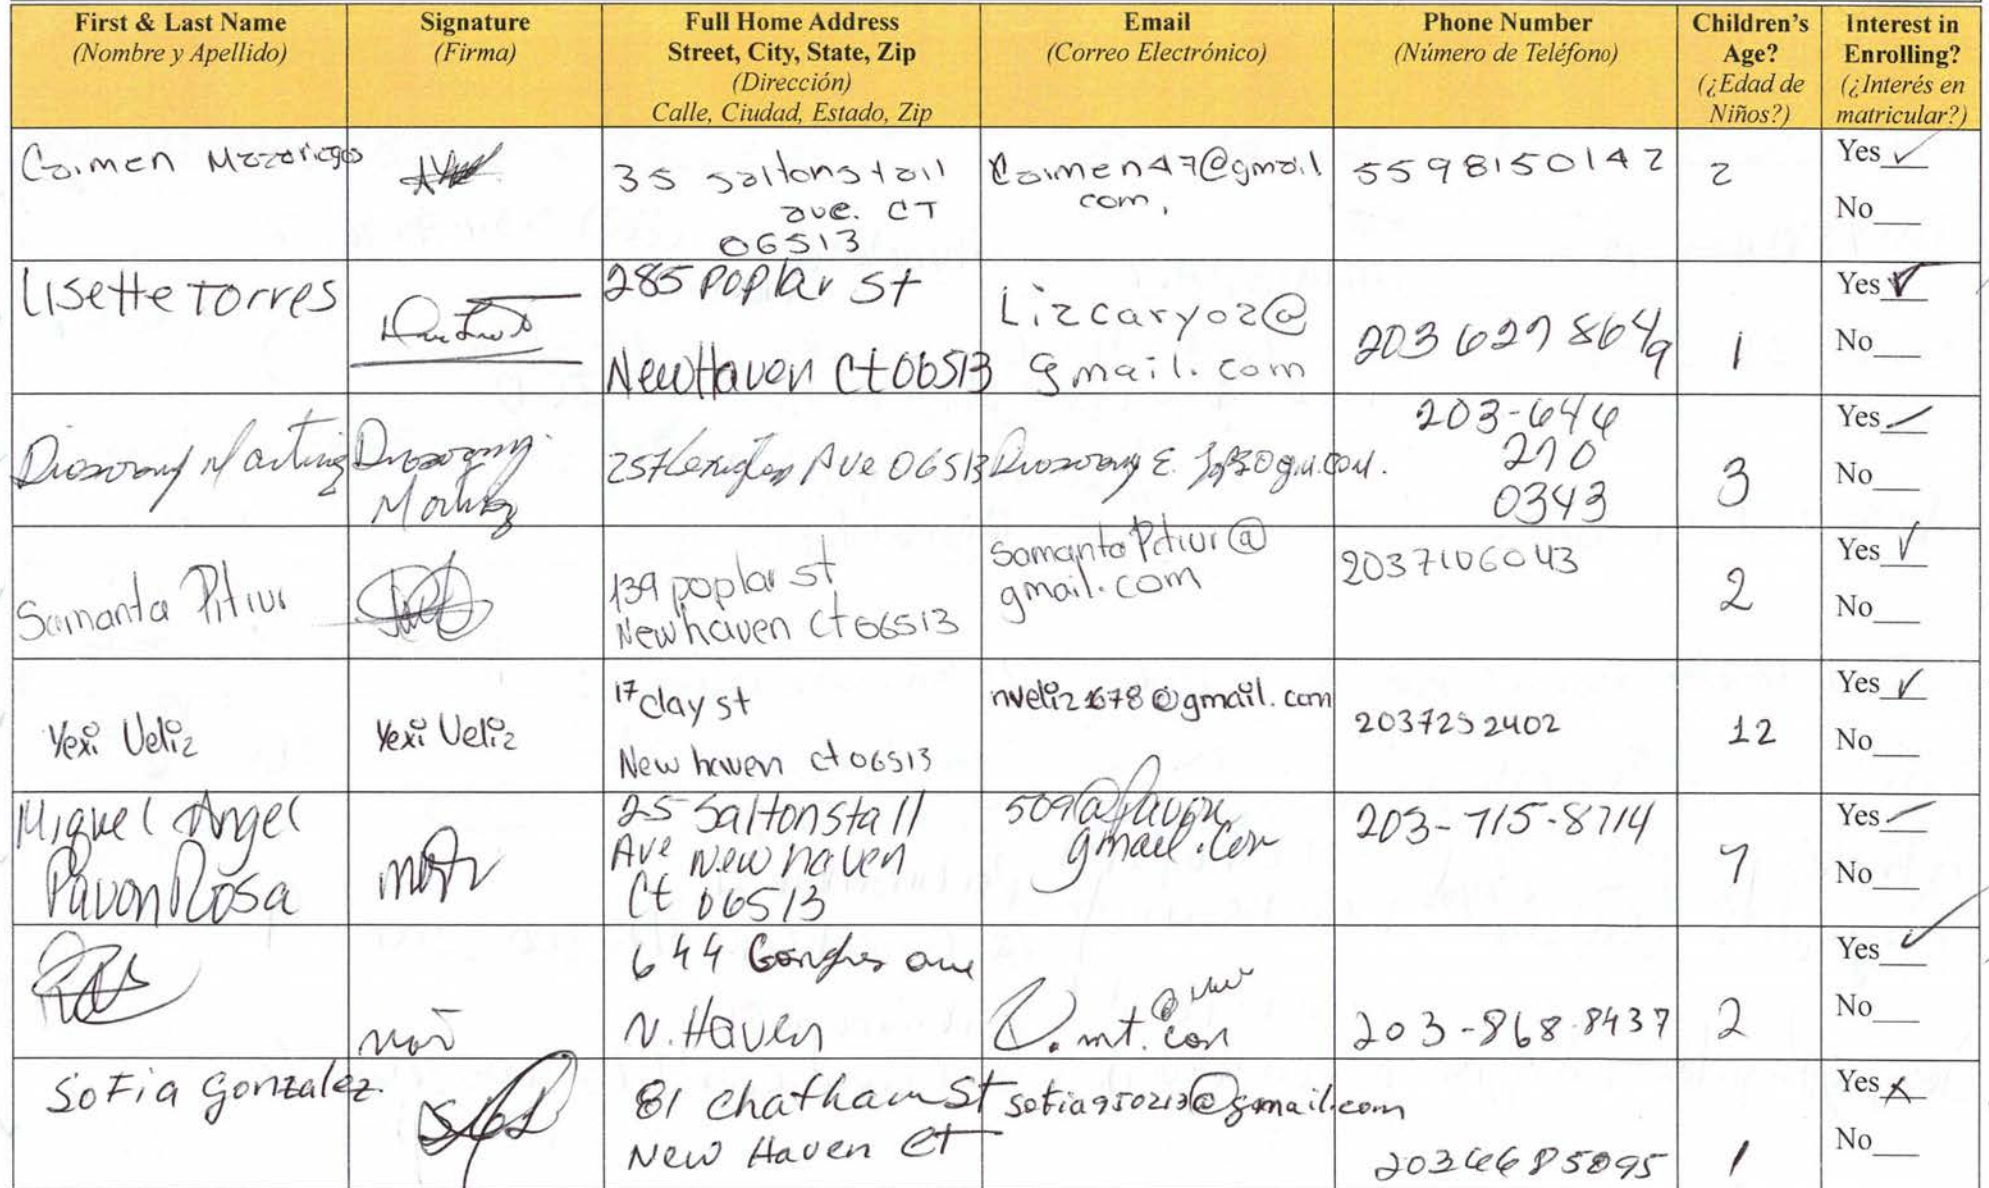 First & Last Name
(Nombre y Apellido)
Signature
(Firma)
Full Home Address
Street, City, State, Zip
(Dirección)
Calle, Ciudad, Estado, Zip
Email
(Correo Electrónico)
Phone Number
(Número de Teléfono)
Children's
Age?
(¿Edad de
Niños?)
Interest in
Enrolling?
(¿Interés en
matricular?)
Mazariegos
35 saltonstall
ave. CT
06513
com,
5598150142
2
Yes
No
Lisette Torres
285 Poplar St
New Haven Ct 06513
Lizcary02@
gmail.com
203 627 8649
1
Yes
No
Ave 06513
203-646
210
0343
3
Yes
No
Samanta
139 poplar st
New haven Ct 06513
gmail.com
2
Yes
No
Yexi Veliz
Yexi Veliz
17 clay st
New haven ct 06513
gmail.com
2037252402
12
Yes
No
Miguel Angel
Pavon Rosa
25 Saltonstall
Ave New haven
Ct 06513
203-715-8714
7
Yes
No
644
N. Haven
203-868-8437
2
Yes
No
Sofia Gonzalez
81 Chatham St
New Haven CT
sofia950213@gmail.com
1
Yes
No